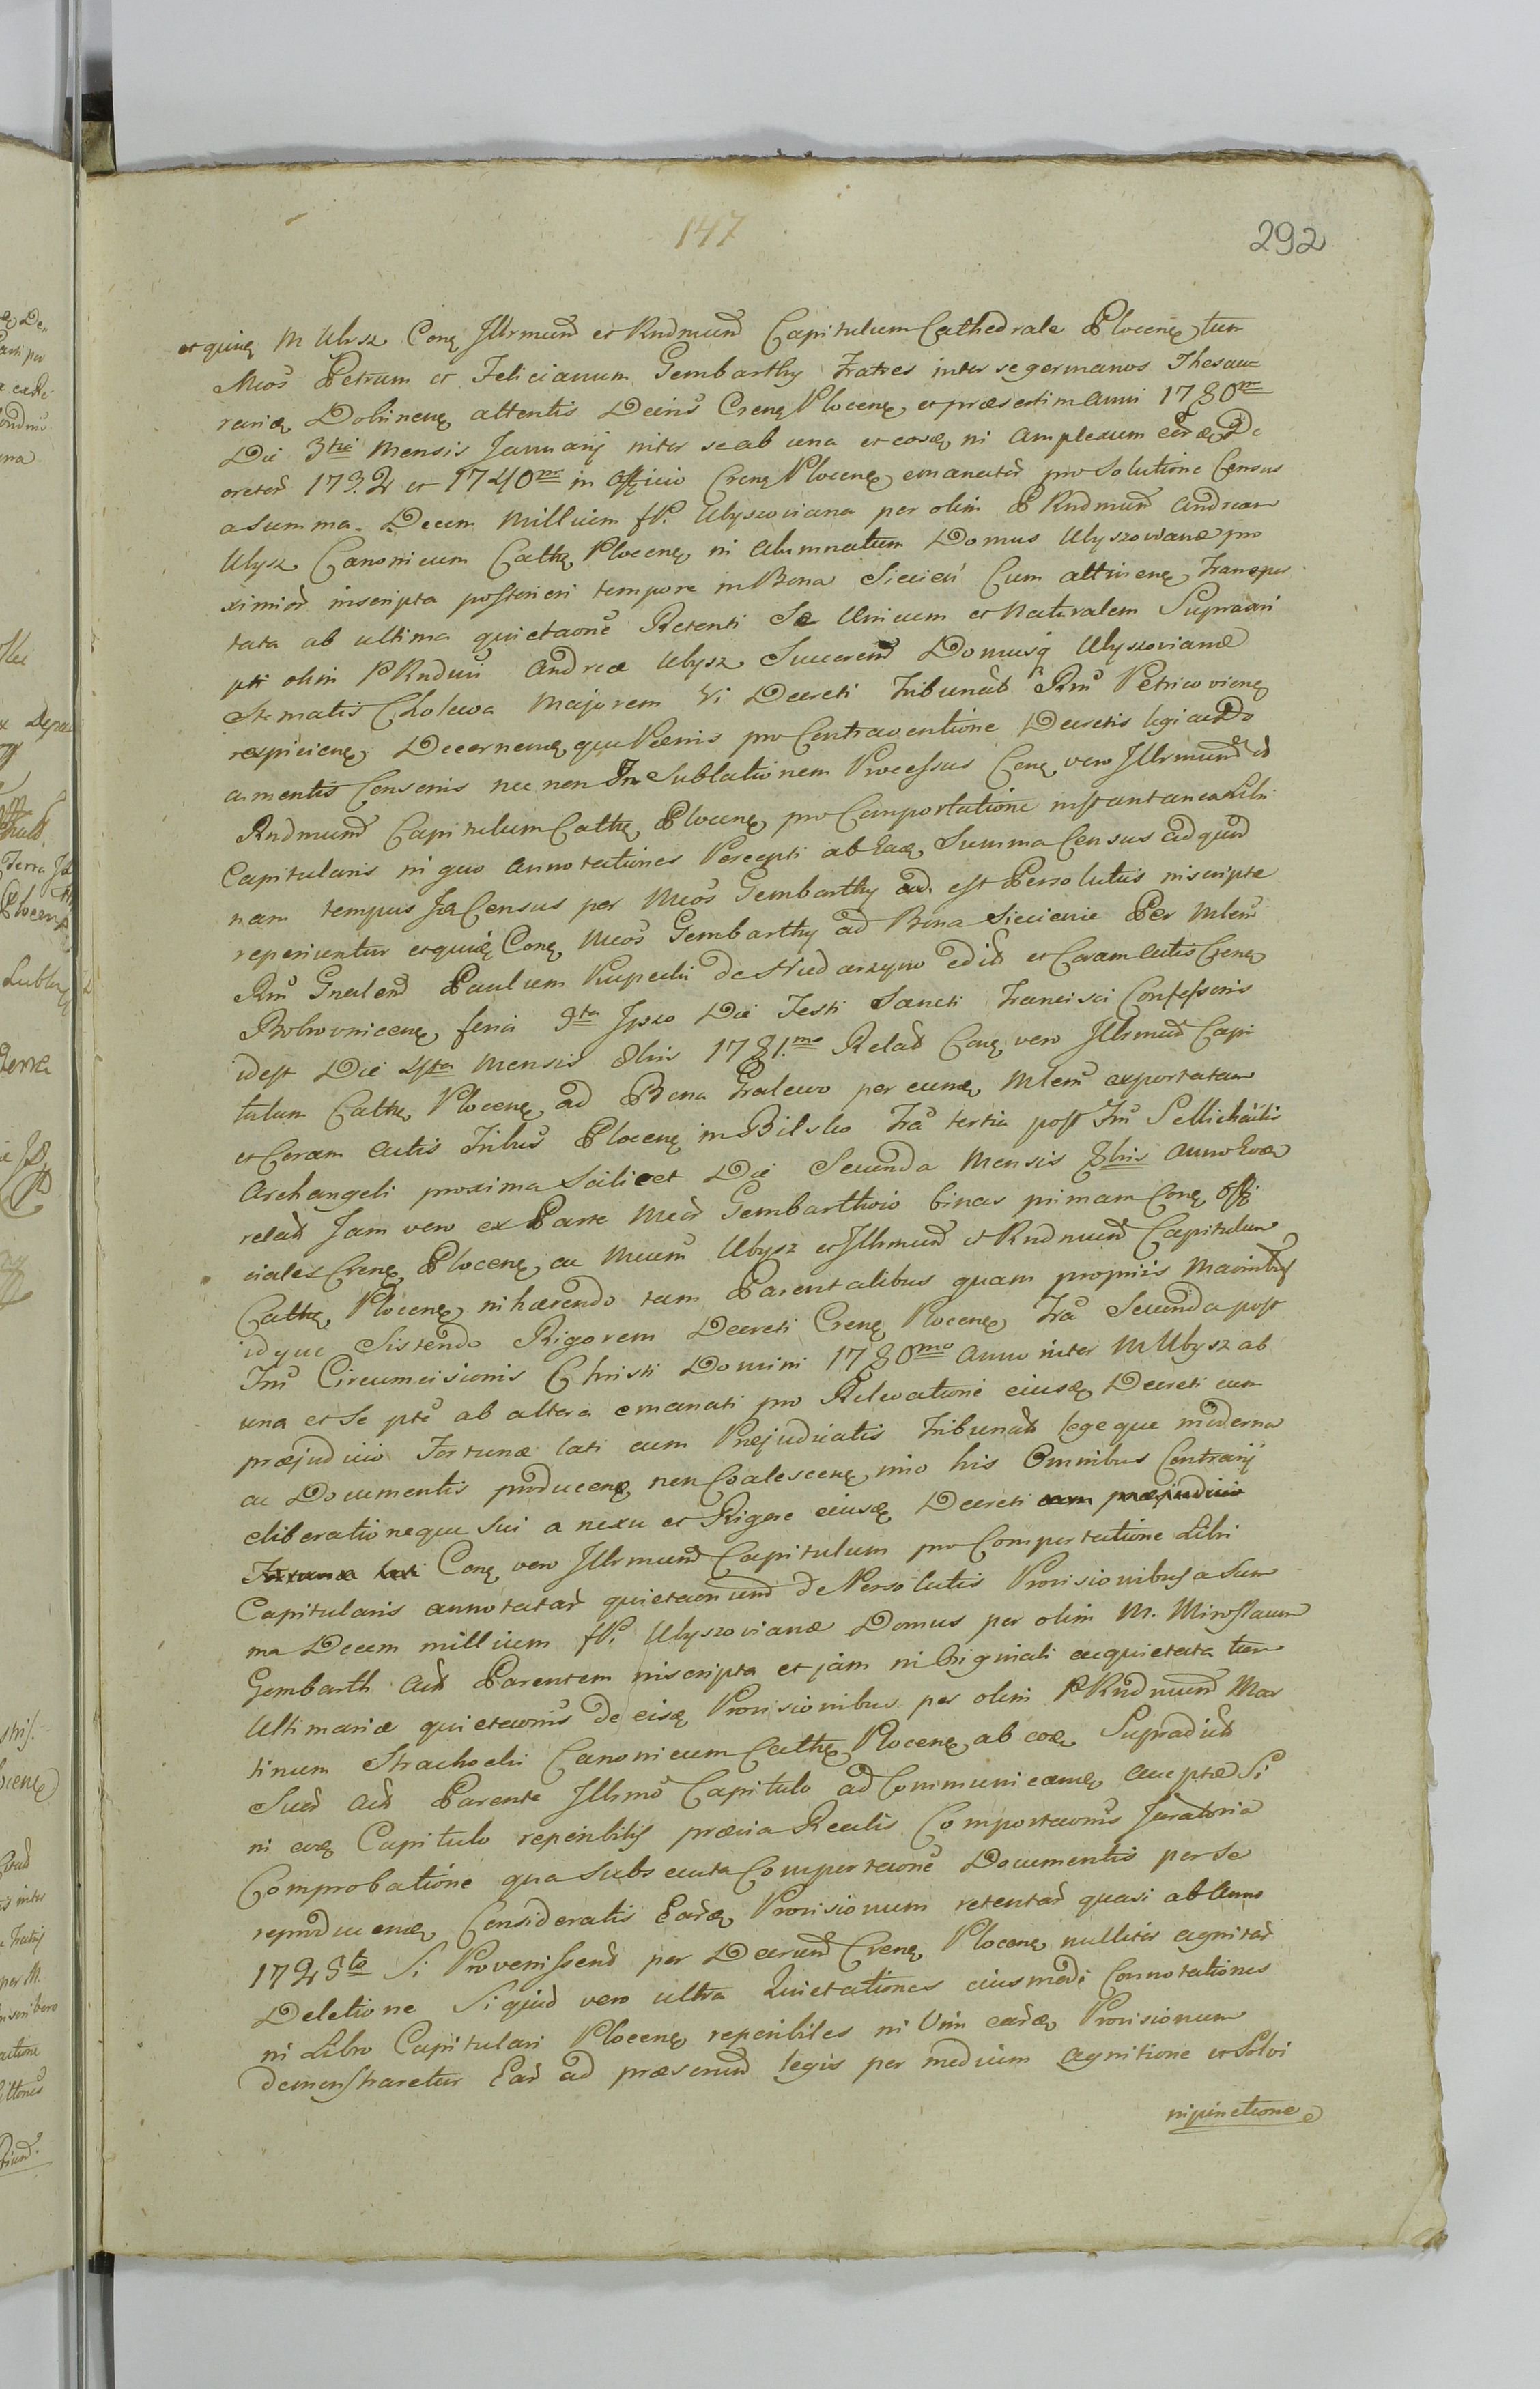 147
292
et quiuę M Ulysz Conę Illrmum̃ et Rndmum̃ Capitulum Cathedrale Plocenę tum
Mcos Petrum et Felicianum Gembarthy Fratres inter se germanos Thesau=
rariæ Dobrinenę attentis Decris Crenę Plocenę et præsertim anni 1780mi
Die 3tiæ Mensis Januarij inter se ab una et eosdę in Amplexum eorę De
cretor̃ 1732 et 1740mi in Officio Crenę Plocenę emanator̃ pro Solutione Census
a Summa Decem Millium fP. Ulyszoviana per olim P Rndmum̃ Andream
Ulysz Canonicum Cathę Plocenę in Alumnatum Domus Ulyszovianæ pro
ximior̃ inscripta posteriori tempore in Bona Siecień Cum attinenę Transpor
tata ab ultima quietaone Retenti Se Unicum et Naturalem Supraari
pti olim P Rndmi Andreæ Ulysz Succerem̃ Domusq̃ Ulyszovianæ
Stematis Cholewa Majorem Vi Decreti Tribunals Rni Petricovienę
respicienę Decernenę que Pænis pro Contraventione Decretis legi ac Do
cumentis Censenis nec non In Sublationem Processus Conę vero Illrmum̃ et
Rndmum̃ Capitulum Cathę Plocenę pro Comportatione instantanea Libri
Capitularis in quo annotationes Percepti ab Eaę Summa Census ad quod
nam tempus Is Census per Mcos Gembarthy ad. est Persolutus inscriptæ
reperiuntur et quidę Conę Mcos Gembarthy ad Bona Siecienie Per Mlem
Rni Gnalem̃ Paulum Krupecki de Nadarzyno edit̃ et Coram Actis Crenę
Bobrovnicenę feria 5ta Ipso Die Festi Sancti Francisci Confessoris
idest Die 4ta Mensis 8bris 1781.mo Relat̃ Conę vero Illrmum̃ Capi
tulum Cathę Plocenę ad Bona Gralewo per eunę Mlem exportatam
et Coram Actis Tribus Plocenę in Bilsko Fra tertia post Fm S Michaelis
Archangeli proxima Scilicet Die Secunda Mensis 8bris Anno Eoę
relat̃ Jam vero ex Parte Mcor̃ Gembarthoio binas primam Conę Offi
ciales Crenę Plocenę ac Mcum Ulysz et Illrmum̃ et Rndmum̃ Capitulum
Cathę Plocenę inhærendo tam Parentalibus quam propriis Manibus
idque Sistendo Rigorem Decreti Crenę Plocenę Fra Secunda post
Fm Circumcisionis Christi Domini 1780mo Anno inter M Ulysz ab
una et Se pte ab altera emanati pro Relevatione eiusę Decreti cum
præjudicio Fortunæ lati cum Præjudicatis Tribunals legeque moderna
ac Documentis producenę non Coalescenę imo his Omnibus Contrarij
eliberationeque Sui a nexu et Rigore eiusę Decreti cum præjudicio
Fortunæ lati Conę vero Illrmum̃ Capitulum pro Comportatione Libri
Capitularis annotatar̃ quietaonum̃ de Persolutis Provisionibus a Sum
ma Decem millium fP. Ulyszovianæ Domus per olim M. Miroslaum
Gembarth Act̃ Parentem inscripta et jam in Originali acquietata tum
Ultimariæ quietaonis de eisę Provisionibus per olim P Rndmum̃ Mar
tinum Strachocki Canonicum Cathę Plocenę ab eoę Supradict̃
Suor̃ Act̃ Parente Illrmo Capitulo ad Communicanę acceptæ Si
in eoę Capitulo reperibilis prævia Realis Comportaonis Juratoria
Comprobatione qua Subsecuta Comportaone Documentis per Se
reproducenę Consideratis Earę Provisionum retentar̃ quasi ab Anno
1725to Si Provenissent per Decrum̃ Crenę Plocenę nulliter agnitar̃
Deletione Siquid vero ultra Quietationes eiusmodi Connotationes
in Libro Capitulari Plocenę reperibiles in Vim earę Provisionum
demonstraretur Ear̃ ad præscrium̃ legis per medium Agnitione et Solvi
injunctione